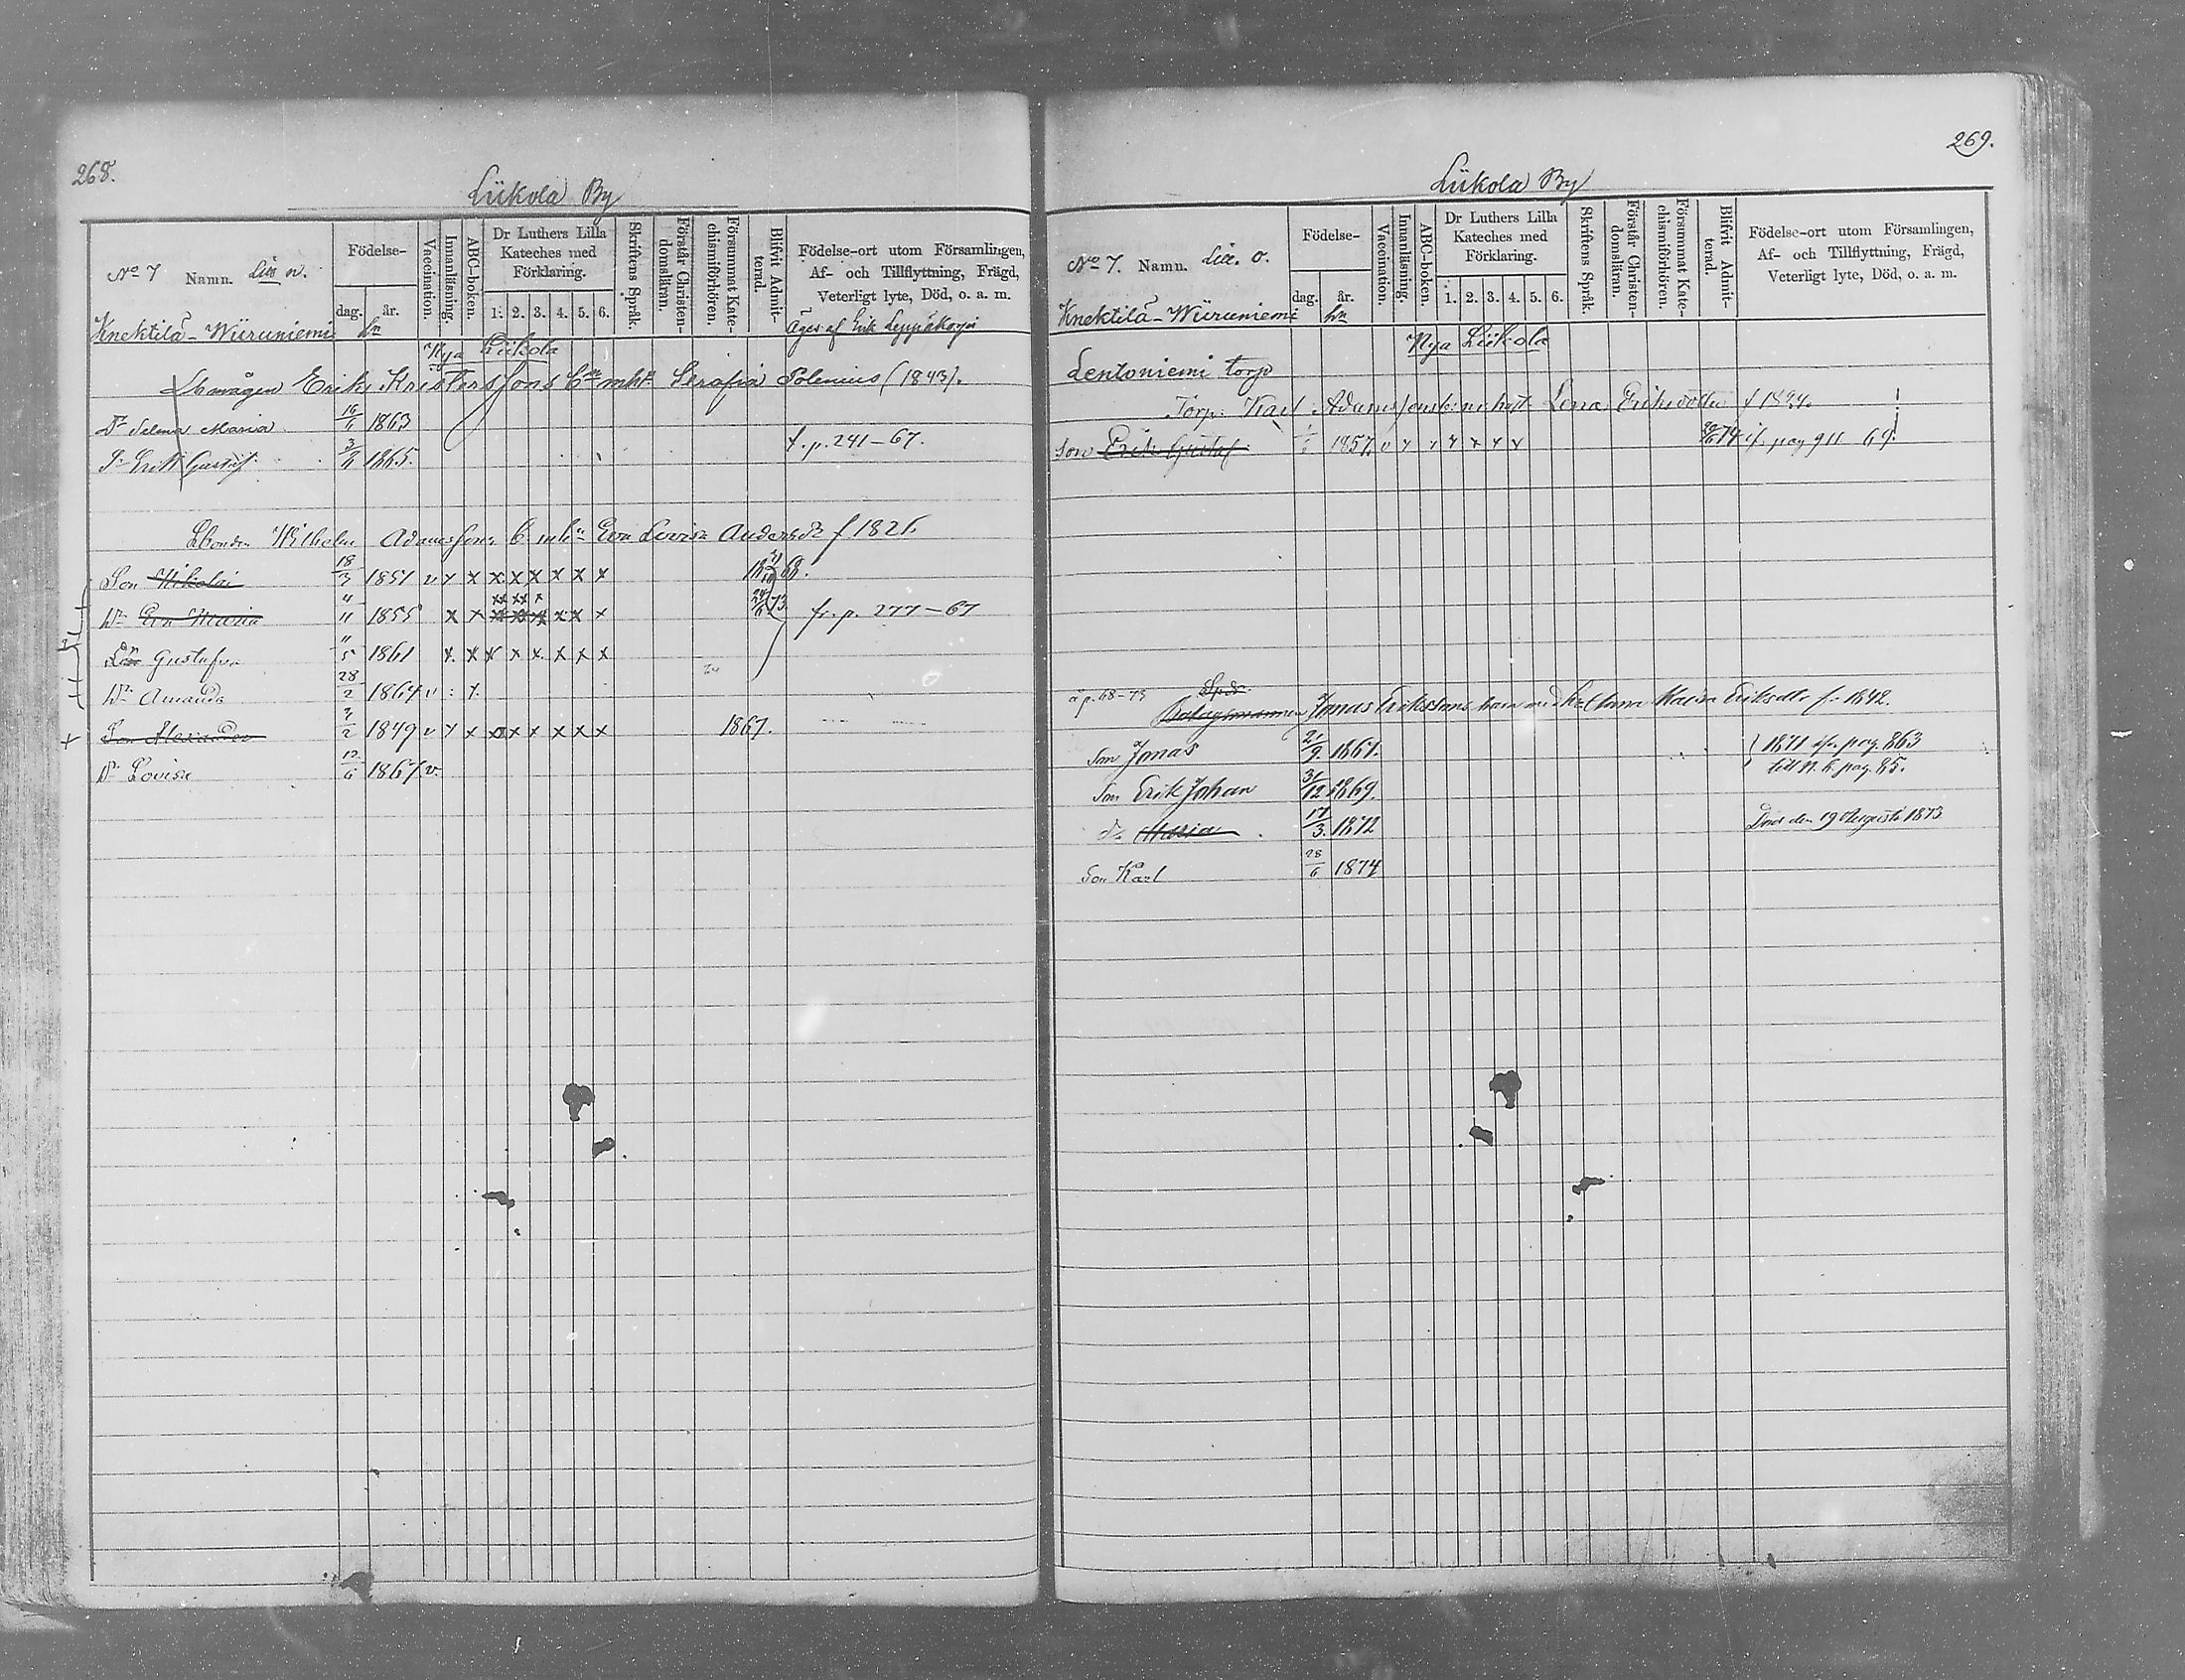 268.
Liikola By
No 7 Namn. Litt n.
Födelse-
dag. år.
Vaccination.
Innanläsning.
ABC-boken.
Dr Luthers Lilla Kateches med Förklaring.
1. 2. 3. 4. 5. 6.
Skriftens Språk.
Förstår Christendomsläran.
Försummat Katechismiförhören.
Blifvit Admitterad.
Födelse-ort utom Församlingen, Af- och Tillflyttning, Frägd, Veterligt lyte, Död, o. a. m.
Knektilä - Wiiruniemi hn Äges af Erik Leppäkorpi
Nya Liikola
Lbmågen Eriks Kristerssons bn m hst Serafia Polenius (1843).
Dr Selma Maria 16/6 1863
S. Erik Gustaf 3/8 1865. f. p. 241-67.
Lbonden Wilhelm Adamssons b. m h. Eva Lovisa Andersdr f 1826
Son Nikolai 18/3 1851 v x x x x x x x x 68.
Dr Eva Maria 11/11 1855 x x x x x x x x 24/6 73. fr. p. 277-67
Dr Gustafva 11/5 1861 x x x x x x x x
Dr Amanda 28/2 1864 v
Son Alexander 2/2 1849 v x x x x x x x x 1867.
Dr Lovisa 12/6 1867 v.
269.
Liikola By
No 7. Namn. Litt. o.
Födelse-
dag. år.
Vaccination.
Innanläsning.
ABC-boken.
Dr Luthers Lilla Kateches med Förklaring.
1. 2. 3. 4. 5. 6.
Skriftens Språk.
Förstår Christendomsläran.
Försummat Katechismiförhören.
Blifvit Admitterad.
Födelse-ort utom Församlingen, Af- och Tillflyttning, Frägd, Veterligt lyte, Död, o. a. m.
Knektilä - Wiiruniemi hn
Nya Liikola
Lentoniemi torp
Torp. Karl Adamssons b. m hst Lena Eriksdotter f 1824.
Son Erik Gustaf 1857. v x x x x x x 74 if. pag 911-69.
a p. 68-73 Spdr.
Bolagsmannen Jonas Erikssons barn med h. Anna Maria Eriksdtr f. 1842.
Son Jonas 21/9. 1867. 1871 ifr. pag. 863
till N. b. pag. 85.
Son Erik Johan 31/12 1869.
dr Maria 17/3. 1872 Död den 19 Augusti 1873
Son Karl 28/6 1874